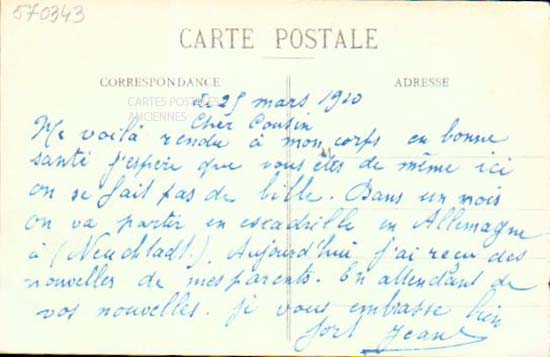 570343
CARTE POSTALE
CORRESPONDANCE
ADRESSE
CARTES POSTALES
ANCIENNES
le 25 mars 1920
Cher Cousin
Me voilà rendu à mon corps en bonne
santé j'espère que vous êtes de même ici
on se fait pas de bille. Dans un mois
on va partir en escadrille en Allemagne
à (Neuchtadt). Aujourd'hui j'ai reçu des
nouvelles de mes parents. En attendant de
vos nouvelles. je vous embrasse bien
fort Jean